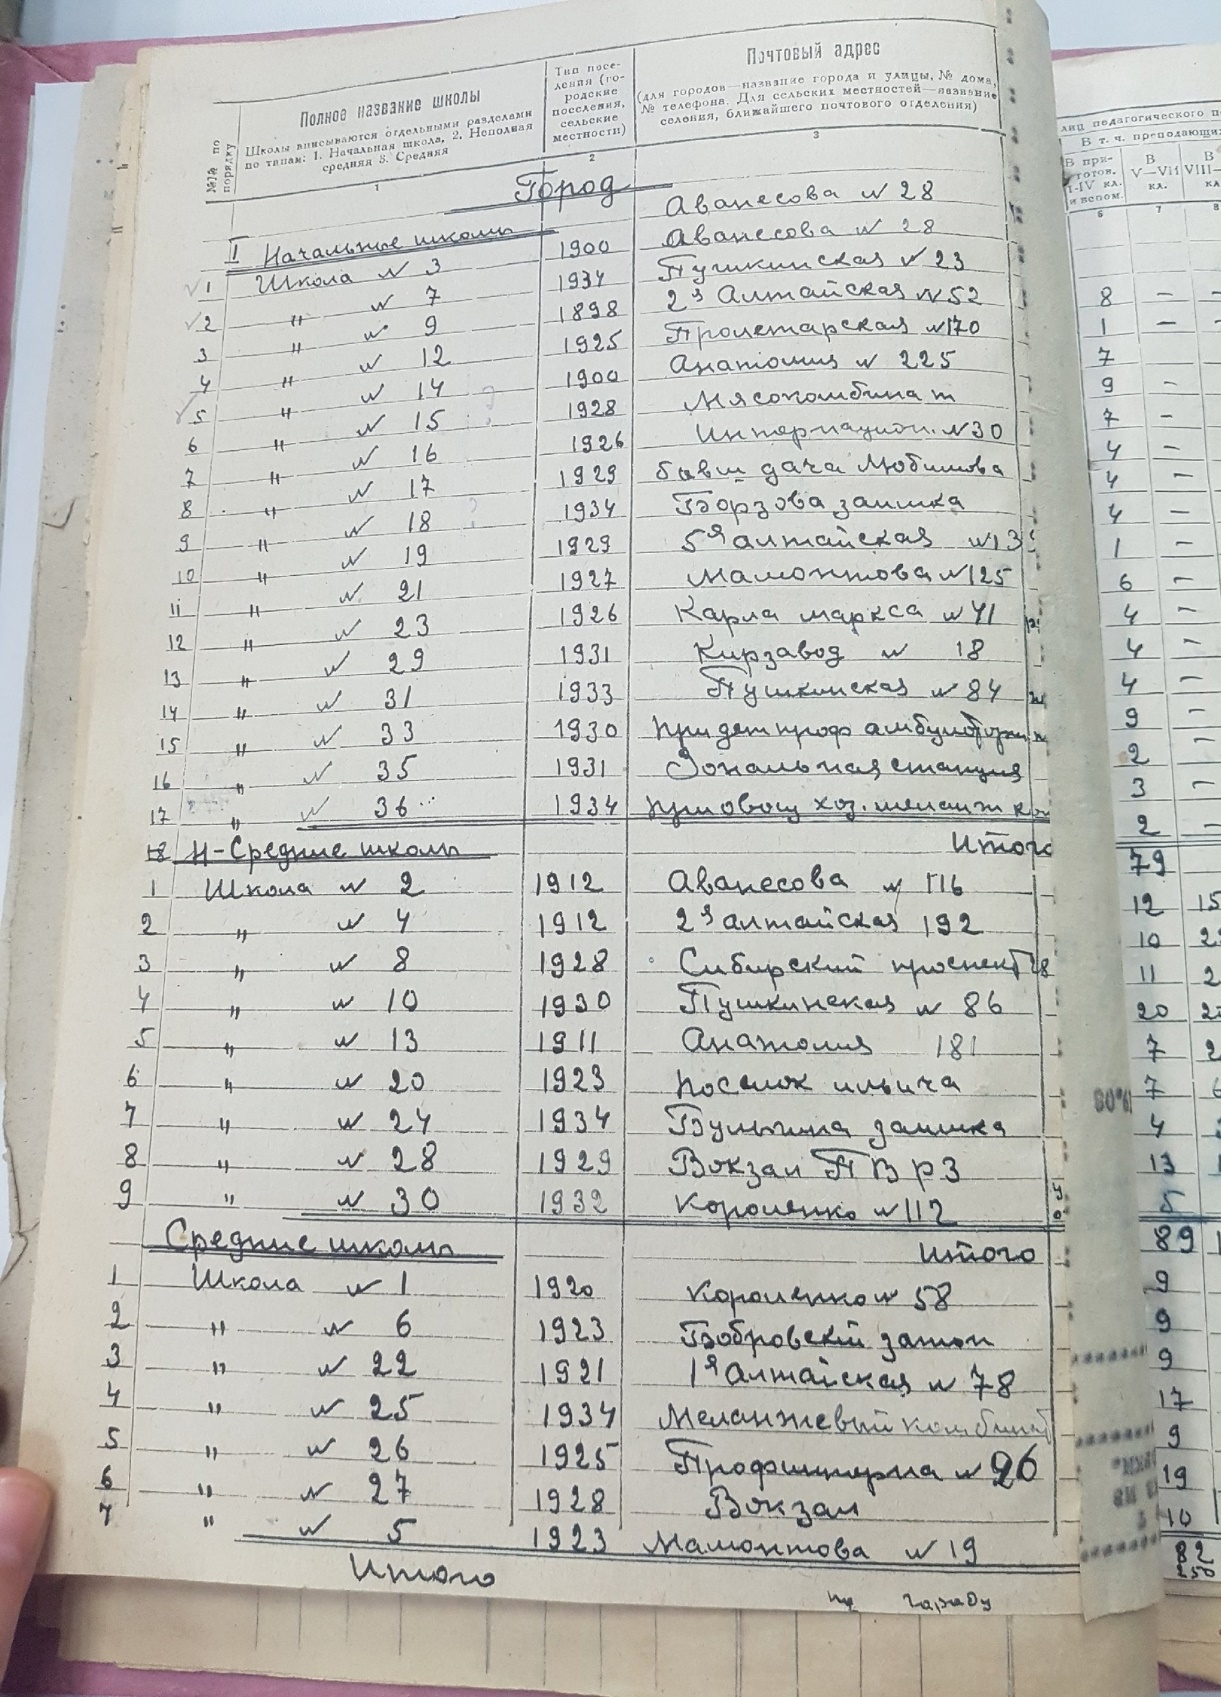 №№ по порядку
Полное название школы
Школы вписываются отдельными разделами
по типам: 1. Начальная школа, 2. Неполная
средняя 3. Средняя
Тип поселения (городские поселения, сельские местности)
Почтовый адрес
(для городов—название города и улицы, № дома,
№ телефона. Для сельских местностей—название
селения, ближайшего почтового отделения)
1 2 3
Город
Аванесова № 28
I Начальные школы
1 Школа № 3 1900 Аванесова № 28
2 " № 7 1934 Пушкинская № 23
3 " № 9 1898 2я Алтайская № 52
4 " № 12 1925 Пролетарская № 170
5 " № 14 1900 Анатолия № 225
6 " № 15 1928 Мясокомбинат
7 " № 16 1926 Интернацион. № 30
8 " № 17 1929 бывш дача Любимова
9 " № 18 1934 Борзова заимка
10 " № 19 1929 5я Алтайская № 13
11 " № 21 1927 Мамонтова № 125
12 " № 23 1926 Карла маркса № 41
13 " № 29 1931 Кирзавод № 18
14 " № 31 1933 Пушкинская № 84
15 " № 33 1930 при дет проф амбулатории
16 " № 35 1931 Зональная станция
17 " № 36 1934
18 Н-Средние школы Итого
1 Школа № 2 1912 Аванесова № 116
2 " № 4 1912 2я алтайская 192
3 " № 8 1928 Сибирский проспект
4 " № 10 1930 Пушкинская № 86
5 " № 13 1911 Анатолия 181
6 " № 20 1923 поселок ильича
7 " № 24 1934 Булыгина заимка
8 " № 28 1929 Вокзал ПВРЗ
9 " № 30 1932 Короленко № 112
Средние школы Итого
1 Школа № 1 1920 Короленко № 58
2 " № 6 1923 Бобровский затон
3 " № 22 1921 1я Алтайская № 78
4 " № 25 1934 Меланжевый комбинат
5 " № 26 1925 Профинтерна № 26
6 " № 27 1928 Вокзал
7 " № 5 1923 Мамонтова № 19
Итого
по городу
лиц педагогического
В т. ч. преподающих
В приготов. I-IV кл. и вспом.
В V—VII кл.
В VIII—
6 7 8
8 —
1 —
7
9 —
7 —
4 —
4 —
4 —
1 —
6 —
4 —
4 —
4 —
9 —
2 —
3 —
2 —
79
12 15
10
11
20
7
7
4
13
5
89
9
9
9
17
9
19
10
82
250